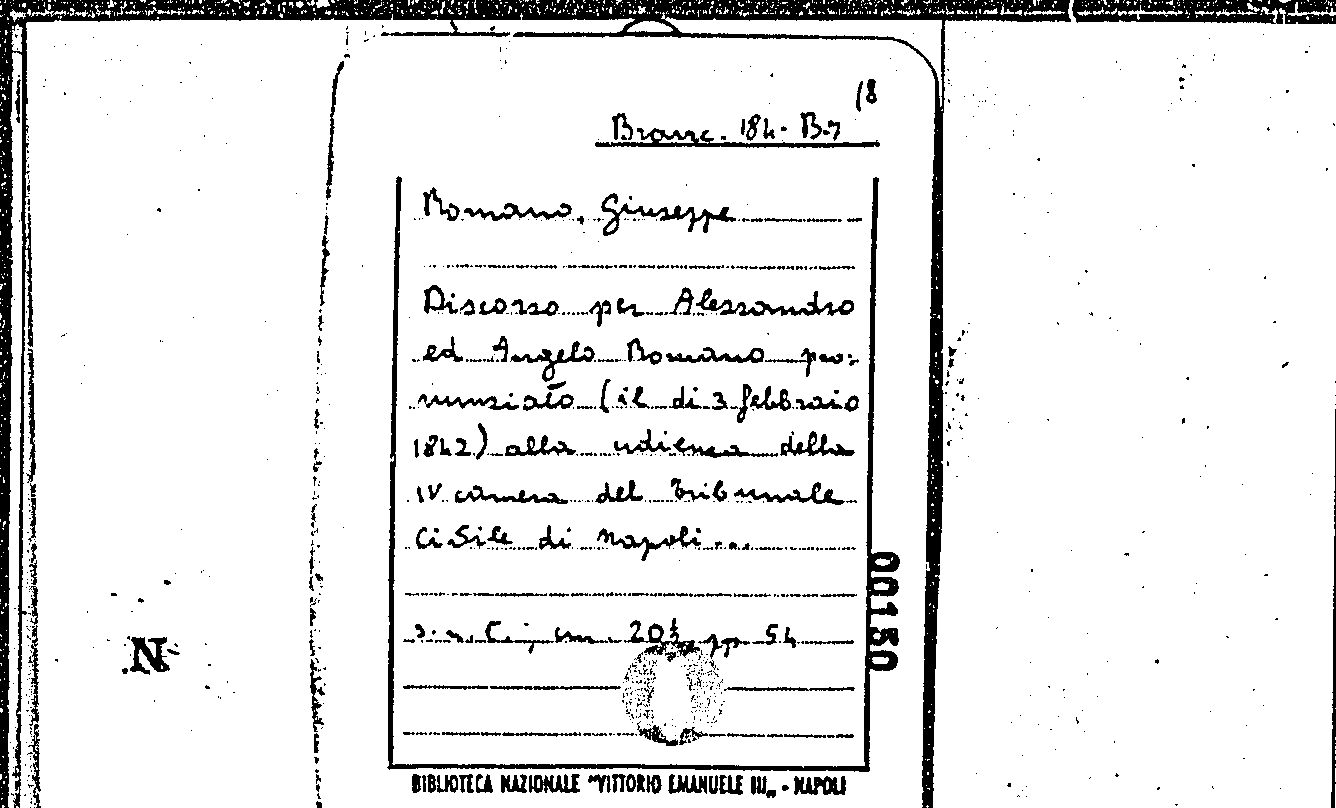 (8
Branc. 184- B-7
Romano, Giuseppe
Discorso per Alessandro
ed Angelo Romano pro-
nunziato (il di 3 febbraio
1842) alla udienza della
IV camera del Tribunale
Civile di Napoli...
s.n.t.; cm. 20½, pp 54
00150
N
BIBLIOTECA NAZIONALE "VITTORIO EMANUELE III„ - NAPOLI